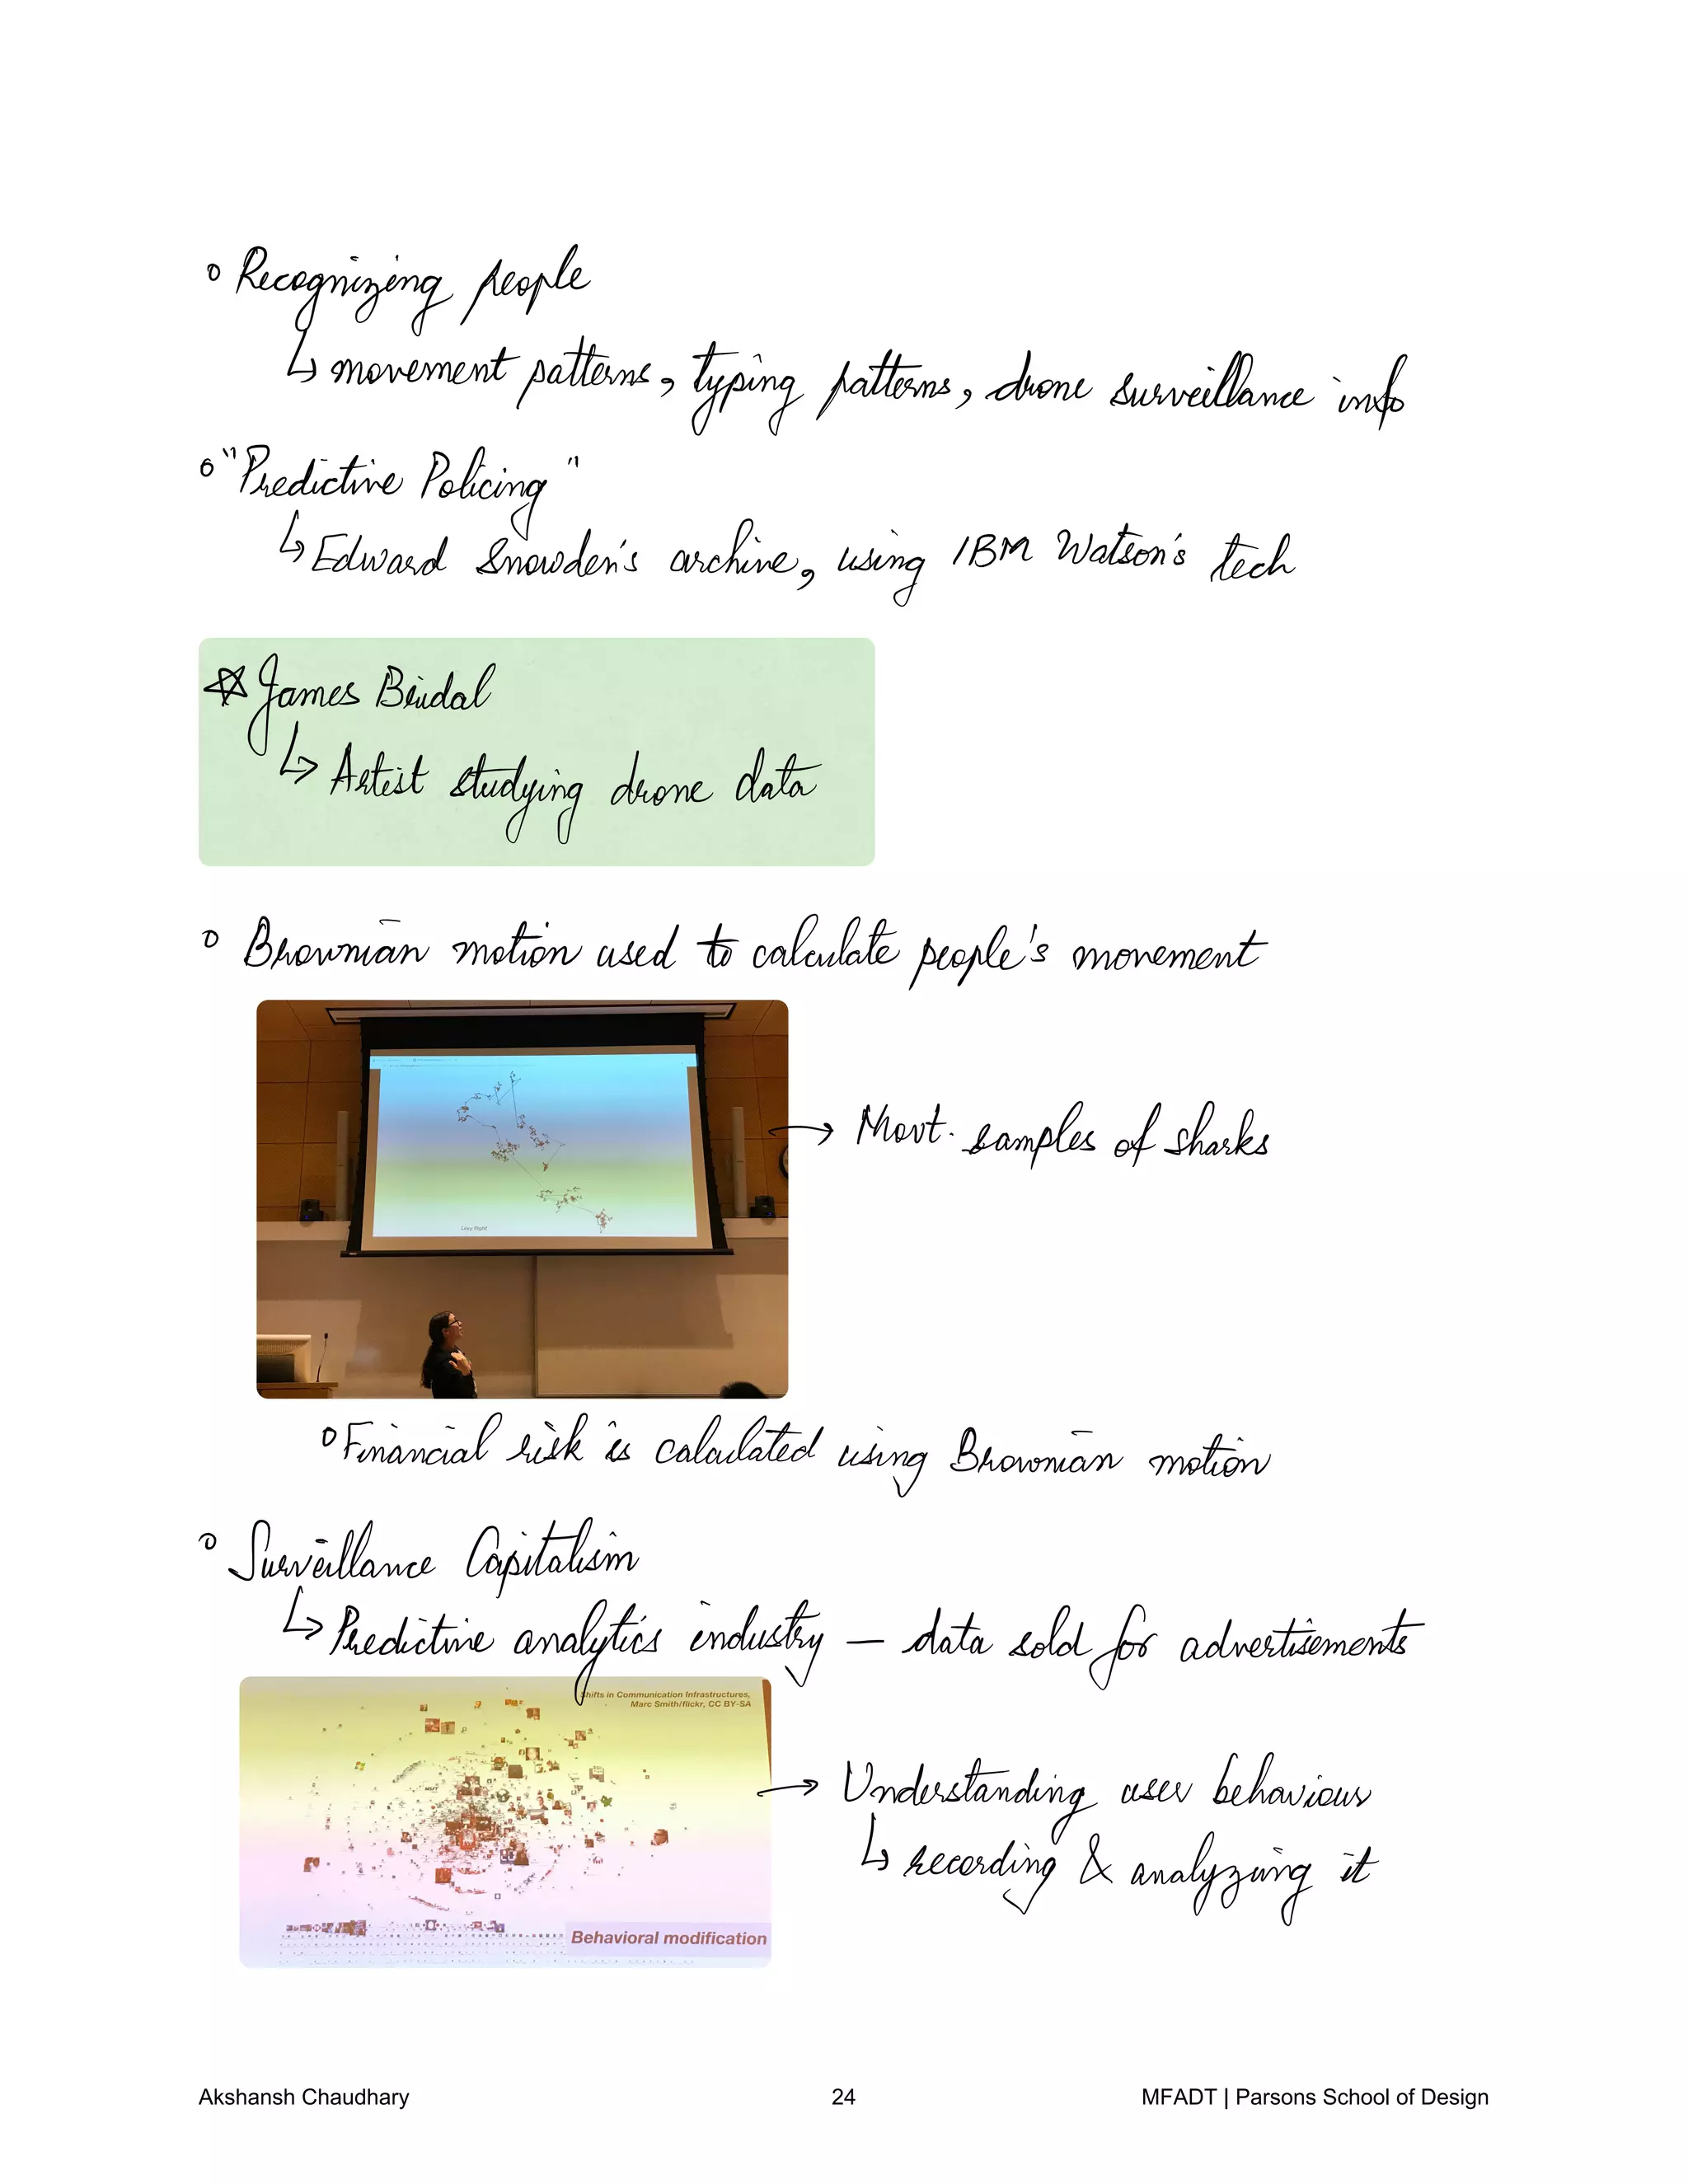 Recognizing people
↳ movement patterns, typing patterns, drone surveillance info
"Predictive Policing"
↳ Edward Snowden's archive, using IBM Watson's tech
☆ James Bridal
↳ Artist studying drone data
Brownian motion used to calculate people's movement
Lévy flight
→ Movt. samples of sharks
Financial risk is calculated using Brownian motion
Surveillance Capitalism
↳ Predictive analytics industry — data sold for advertisements
Shifts in Communication Infrastructures,
Marc Smith/flickr, CC BY-SA
→ Understanding user behaviour
↳ recording & analyzing it
Behavioral modification
Akshansh Chaudhary 24 MFADT | Parsons School of Design